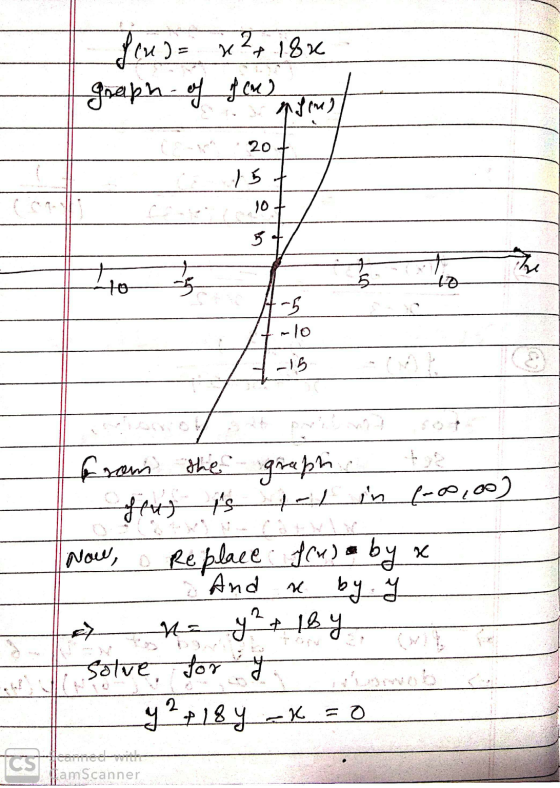 f(x) = x² + 18x
graph of f(x)
f(x)
20
15
10
5
-10 -5 5 10 x
-5
-10
-15
From the graph
f(x) is 1-1 in (-∞,∞)
Now, Replace f(x) by x
And x by y
⇒ x = y² + 18y
Solve for y
y² + 18y - x = 0
CS Scanned with
CamScanner